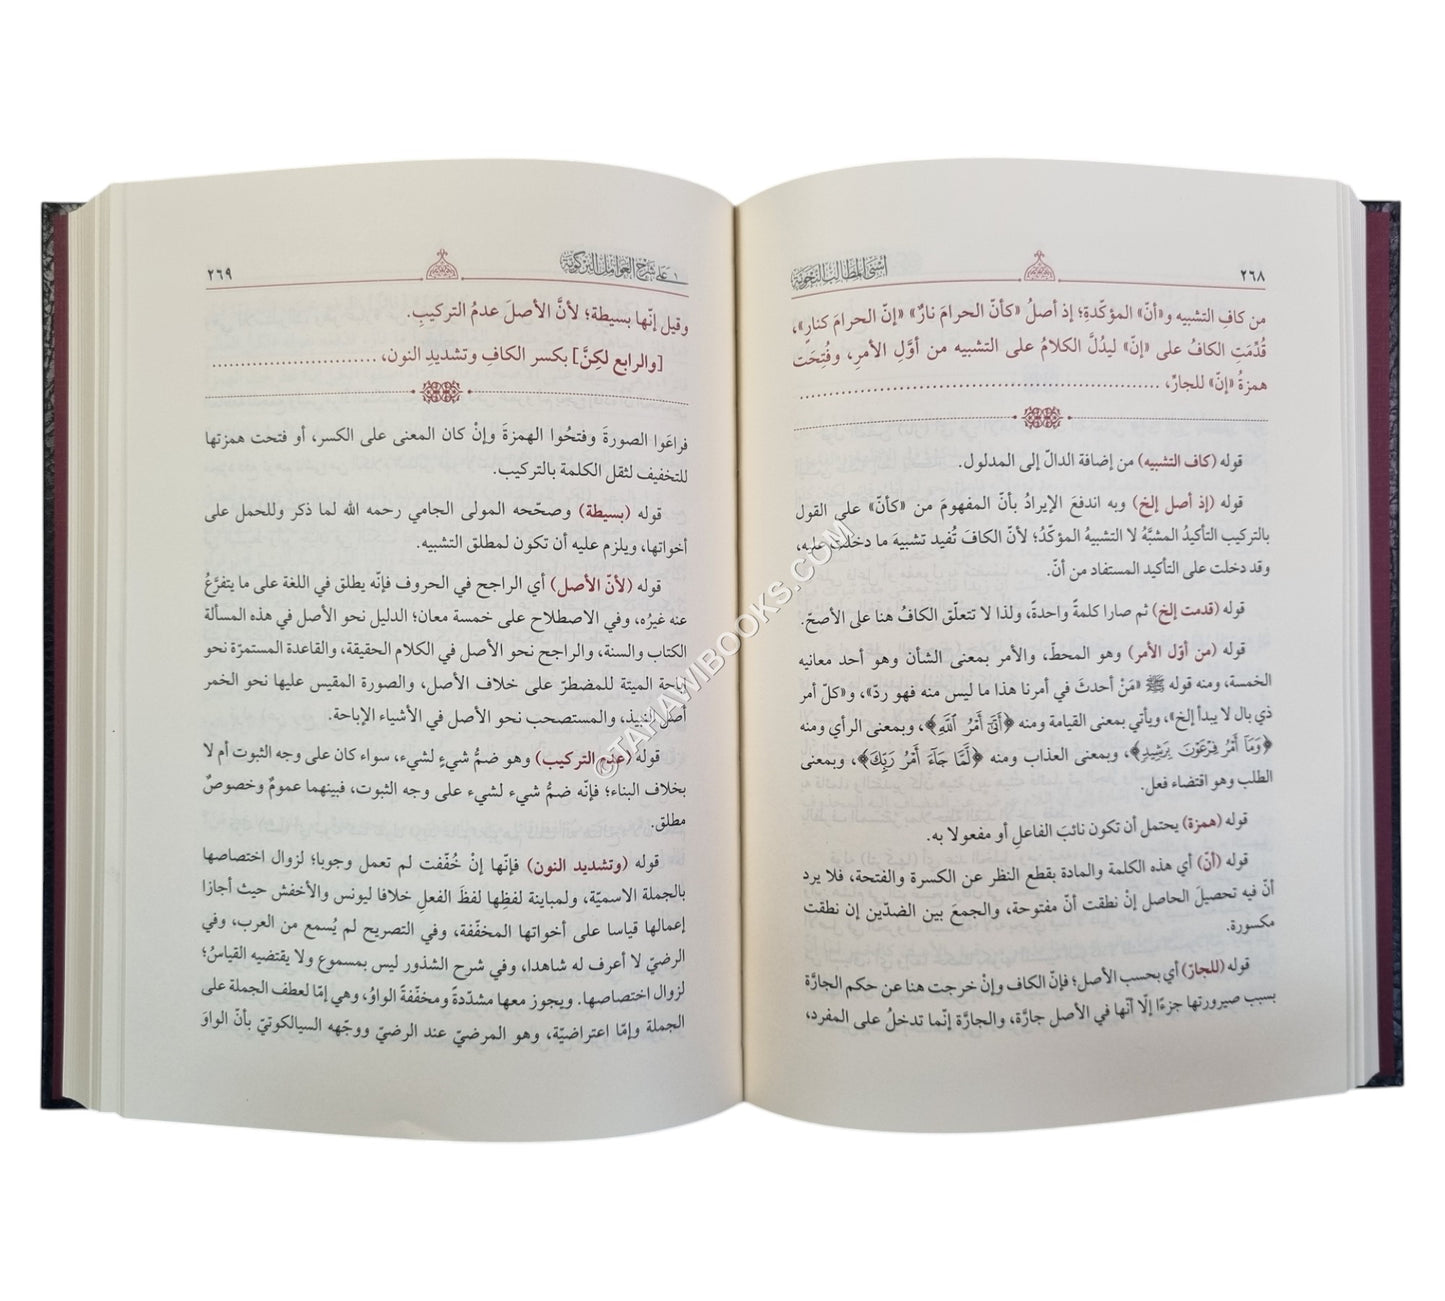 ٢٦٨
أسنى المطالب النحوية
من كافِ التشبيه و«أنّ» المؤكّدةِ؛ إذ أصلُ «كأنّ الحرامَ نارٌ» «إنّ الحرامَ كنارٍ»،
قُدِّمَتِ الكافُ على «إنّ» ليدُلَّ الكلامُ على التشبيه من أوَّلِ الأمرِ، وفُتِحَت
همزةُ «إنّ» للجارِّ، ............................................................
قوله (كاف التشبيه) من إضافة الدالّ إلى المدلول.
قوله (إذ أصل إلخ) وبه اندفعَ الإيرادُ بأنّ المفهومَ من «كأنّ» على القول
بالتركيب التأكيدُ المشبَّهُ لا التشبيهُ المؤكّدُ؛ لأنّ الكافَ تُفيد تشبيهَ ما دخلت عليه،
وقد دخلت على التأكيد المستفاد من أنّ.
قوله (قدمت إلخ) ثم صارا كلمةً واحدةً، ولذا لا تتعلّق الكافُ هنا على الأصحّ.
قوله (من أوّل الأمر) وهو المحطّ، والأمر بمعنى الشأن وهو أحد معانيه
الخمسة، ومنه قوله ﷺ «مَنْ أحدثَ في أمرنا هذا ما ليس منه فهو ردّ»، و«كلّ أمر
ذي بال لا يبدأ إلخ»، ويأتي بمعنى القيامة ومنه ﴿أَتَىٰٓ أَمْرُ ٱللَّهِ﴾، وبمعنى الرأي ومنه
﴿وَمَآ أَمْرُ فِرْعَوْنَ بِرَشِيدٍ﴾، وبمعنى العذاب ومنه ﴿لَّمَّا جَآءَ أَمْرُ رَبِّكَ﴾، وبمعنى
الطلب وهو اقتضاء فعل.
قوله (همزة) يحتمل أن تكون نائبَ الفاعلِ أو مفعولا به.
قوله (أنّ) أي هذه الكلمة والمادة بقطع النظر عن الكسرة والفتحة، فلا يرد
أنّ فيه تحصيلَ الحاصل إنْ نطقت أنّ مفتوحة، والجمعَ بين الضدّين إن نطقت
مكسورة.
قوله (للجارّ) أي بحسب الأصل؛ فإنّ الكاف وإنْ خرجت هنا عن حكم الجارَّة
بسبب صيرورتها جزءًا إلّا أنّها في الأصل جارَّة، والجارَّة إنّما تدخلُ على المفرد،
على شرح العوامل البركوية
٢٦٩
وقيل إنّها بسيطة؛ لأنَّ الأصلَ عدمُ التركيبِ.
[والرابع لكِنَّ] بكسر الكافِ وتشديدِ النون، .......................
فراعَوا الصورةَ وفتحُوا الهمزةَ وإنْ كان المعنى على الكسر، أو فتحت همزتها
للتخفيف لثقل الكلمة بالتركيب.
قوله (بسيطة) وصحّحه المولى الجامي رحمه الله لما ذكر وللحمل على
أخواتها، ويلزم عليه أن تكون لمطلق التشبيه.
قوله (لأنّ الأصل) أي الراجح في الحروف فإنّه يطلق في اللغة على ما يتفرَّعُ
عنه غيرُه، وفي الاصطلاح على خمسة معان؛ الدليل نحو الأصل في هذه المسألة
الكتاب والسنة، والراجح نحو الأصل في الكلام الحقيقة، والقاعدة المستمرّة نحو
إباحة الميتة للمضطرّ على خلاف الأصل، والصورة المقيس عليها نحو الخمر
أصل للنبيذ، والمستصحب نحو الأصل في الأشياء الإباحة.
قوله (عدم التركيب) وهو ضمُّ شيءٍ لشيء، سواء كان على وجه الثبوت أم لا
بخلاف البناء؛ فإنّه ضمُّ شيء لشيء على وجه الثبوت، فبينهما عمومٌ وخصوصٌ
مطلق.
قوله (وتشديد النون) فإنّها إنْ خُفّفت لم تعمل وجوبا؛ لزوال اختصاصها
بالجملة الاسميّة، ولمباينة لفظِها لفظَ الفعلِ خلافا ليونس والأخفش حيث أجازا
إعمالها قياسا على أخواتها المخفّفة، وفي التصريح لم يُسمع من العرب، وفي
الرضيّ لا أعرف له شاهدا، وفي شرح الشذور ليس بمسموع ولا يقتضيه القياسُ؛
لزوال اختصاصها. ويجوز معها مشدّدةً ومخفّفةً الواوُ، وهي إمّا لعطف الجملة على
الجملة وإمّا اعتراضيّة، وهو المرضيّ عند الرضيّ ووجّهه السيالكوتيّ بأنّ الواوَ
©TAHAWIBOOKS.COM